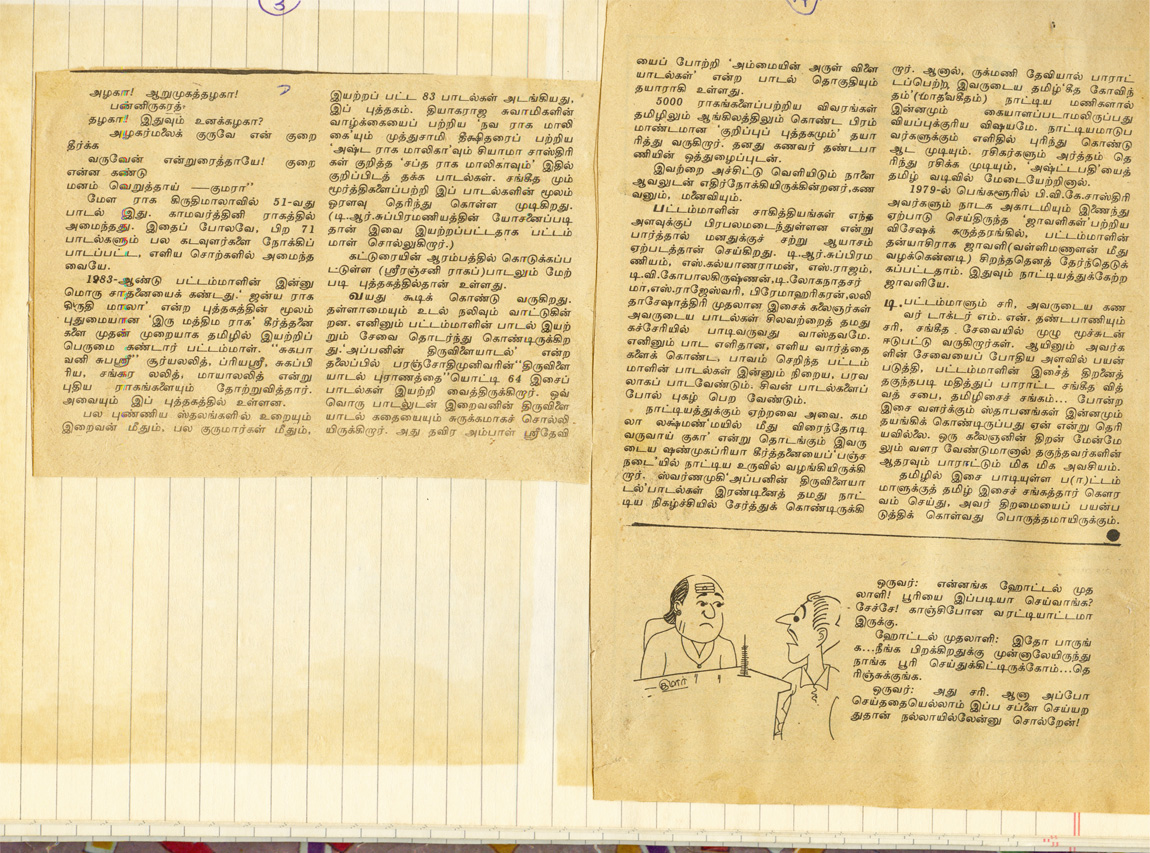 3
அழகா! ஆறுமுகத்தழகா!
பன்னிருகரத்
தழகா! இதுவும் உனக்கழகா?
அழகர்மலைக் குருவே என் குறை
தீர்க்க
வருவேன் என்றுரைத்தாயே! குறை
என்ன கண்டு
மனம் வெறுத்தாய் —குமரா"
மேள ராக கிருதிமாலாவில் 51-வது
பாடல் இது. காமவர்த்தினி ராகத்தில்
அமைந்தது. இதைப் போலவே, பிற 71
பாடல்களும் பல கடவுளர்களை நோக்கிப்
பாடப்பட்ட, எளிய சொற்களில் அமைந்த
வையே.
1983-ஆண்டு பட்டம்மாளின் இன்னு
மொரு சாதனையைக் கண்டது.' ஜன்ய ராக
கிருதி மாலா' என்ற புத்தகத்தின் மூலம்
புதுமையான 'இரு மத்திம ராக' கீர்த்தனை
களை முதன் முறையாக தமிழில் இயற்றிப்
பெருமை கண்டார் பட்டம்மாள். "சுகபா
வனி சுபஸ்ரீ" சூர்யலலித், ப்ரியஸ்ரீ, சுகப்பி
ரிய, சங்கர லலித், மாயாலலித் என்று
புதிய ராகங்களையும் தோற்றுவித்தார்.
அவையும் இப் புத்தகத்தில் உள்ளன.
பல புண்ணிய ஸ்தலங்களில் உறையும்
இறைவன் மீதும், பல குருமார்கள் மீதும்,
இயற்றப் பட்ட 83 பாடல்கள் அடங்கியது,
இப் புத்தகம். தியாகராஜ சுவாமிகளின்
வாழ்க்கையைப் பற்றிய 'நவ ராக மாலி
கை'யும் முத்துசாமி தீக்ஷிதரைப் பற்றிய
'அஷ்ட ராக மாலிகா'வும் சியாமா சாஸ்திரி
கள் குறித்த 'சப்த ராக மாலிகாவும்' இதில்
குறிப்பிடத் தக்க பாடல்கள். சங்கீத மும்
மூர்த்திகளைப்பற்றி இப் பாடல்களின் மூலம்
ஓரளவு தெரிந்து கொள்ள முடிகிறது.
(டி.ஆர்.சுப்பிரமணியத்தின் யோசனைப்படி
தான் இவை இயற்றப்பட்டதாக பட்டம்
மாள் சொல்லுகிறார்.)
கட்டுரையின் ஆரம்பத்தில் கொடுக்கப்ப
ட்டுள்ள (ஸ்ரீரஞ்சனி ராகப்)பாடலும் மேற்
படி புத்தகத்தில்தான் உள்ளது.
வயது கூடிக் கொண்டு வருகிறது.
தள்ளாமையும் உடல் நலிவும் வாட்டுகின்
றன. எனினும் பட்டம்மாளின் பாடல் இயற்
றும் சேவை தொடர்ந்து கொண்டிருக்கிற
து.'அப்பனின் திருவிளையாடல்' என்ற
தலைப்பில் பரஞ்சோதிமுனிவரின்"திருவிளை
யாடல் புராணத்தை"யொட்டி 64 இசைப்
பாடல்கள் இயற்றி வைத்திருக்கிறார். ஒவ்
வொரு பாடலுடன் இறைவனின் திருவிளை
யாடல் கதையையும் சுருக்கமாகச் சொல்லி
யிருக்கிறார். அது தவிர அம்பாள் ஸ்ரீதேவி
யைப் போற்றி 'அம்மையின் அருள் விளை
யாடல்கள்' என்ற பாடல் தொகுதியும்
தயாராகி உள்ளது.
5000 ராகங்களைப்பற்றிய விவரங்கள்
தமிழிலும் ஆங்கிலத்திலும் கொண்ட பிரம்
மாண்டமான 'குறிப்புப் புத்தகமும்' தயா
ரித்து வருகிறார். தனது கணவர் தண்டபா
ணியின் ஒத்துழைப்புடன்.
இவற்றை அச்சிட்டு வெளியிடும் நாளை
ஆவலுடன் எதிர்நோக்கியிருக்கின்றனர்,கண
வனும், மனைவியும்.
பட்டம்மாளின் சாகித்தியங்கள் எந்த
அளவுக்குப் பிரபலமடைந்துள்ளன என்று
பார்த்தால் மனதுக்குச் சற்று ஆயாசம்
ஏற்படத்தான் செய்கிறது. டி.ஆர்.சுப்பிரம
ணியம், எஸ்.கல்யாணராமன், எஸ்.ராஜம்,
டி.வி.கோபாலகிருஷ்ணன்,டி.லோகநாதசர்
மா,எஸ்.ராஜேஸ்வரி, பிரேமாஹரிகரன்,லலி
தாசேஷாத்திரி முதலான இசைக் கலைஞர்கள்
அவருடைய பாடல்கள் சிலவற்றைத் தமது
கச்சேரியில் பாடிவருவது வாஸ்தவமே.
எனினும் பாட எளிதான, எளிய வார்த்தை
களைக் கொண்ட, பாவம் செறிந்த பட்டம்
மாளின் பாடல்கள் இன்னும் நிறைய, பரவ
லாகப் பாடவேண்டும். சிவன் பாடல்களைப்
போல் புகழ் பெற வேண்டும்.
நாட்டியத்துக்கும் ஏற்றவை அவை. கம
லா லக்ஷ்மண்'மயில் மீது விரைந்தோடி
வருவாய் குகா' என்று தொடங்கும் இவரு
டைய ஷண்முகப்ரியா கீர்த்தனையைப்'பஞ்ச
நடை'யில் நாட்டிய உருவில் வழங்கியிருக்கி
றார். ஸ்வர்ணமுகி'அப்பனின் திருவிளையா
டல்'பாடல்கள் இரண்டினைத் தமது நாட்
டிய நிகழ்ச்சியில் சேர்த்துக் கொண்டிருக்கி
றார். ஆனால், ருக்மணி தேவியால் பாராட்
டப்பெற்ற, இவருடைய தமிழ்'கீத கோவிந்
தம்'(மாதவகீதம்) நாட்டிய மணிகளால்
இன்னமும் கையாளப்படாமலிருப்பது
வியப்புக்குரிய விஷயமே. நாட்டியமாடுப
வர்களுக்கும் எளிதில் புரிந்து கொண்டு
ஆட முடியும். ரசிகர்களும் அர்த்தம் தெ
ரிந்து ரசிக்க முடியும், 'அஷ்ட்டபதி'யைத்
தமிழ் வடிவில் மேடையேற்றினால்.
1979-ல் பெங்களூரில் பி.வி.கே.சாஸ்திரி
அவர்களும் நாடக அகாடமியும் இணைந்து
ஏற்பாடு செய்திருந்த 'ஜாவளிகள்'பற்றிய
விசேஷக் கருத்தரங்கில், பட்டம்மாளின்
தன்யாசிராக ஜாவளி(வள்ளிமணாளன்
வழக்கென்னடி) சிறந்ததெனத் தேர்ந்தெடுக்
கப்பட்டதாம். இதுவும் நாட்டியத்துக்கேற்ற
ஜாவளியே.
டி.பட்டம்மாளும் சரி, அவருடைய கண
வர் டாக்டர் எம். என். தண்டபாணியும்
சரி, சங்கீத சேவையில் முழு மூச்சுடன்
ஈடுபட்டு வருகிறார்கள். ஆயினும் அவர்க
ளின் சேவையைப் போதிய அளவில் பயன்
படுத்தி, பட்டம்மாளின் இசைத் திறனைத்
தகுந்தபடி மதித்துப் பாராட்ட சங்கீத வித்
வத் சபை, தமிழிசைச் சங்கம்... போன்ற
இசை வளர்க்கும் ஸ்தாபனங்கள் இன்னமும்
தயங்கிக் கொண்டிருப்பது ஏன் என்று தெரி
யவில்லை. ஒரு கலைஞனின் திறன் மேன்மே
லும் வளர வேண்டுமானால் தகுந்தவர்களின்
ஆதரவும் பாராட்டும் மிக மிக அவசியம்.
தமிழில் இசை பாடியுள்ள ப(ா)ட்டம்
மாளுக்குத் தமிழ் இசைச் சங்கத்தார் கௌர
வம் செய்து, அவர் திறமையைப் பயன்ப
டுத்திக் கொள்வது பொருத்தமாயிருக்கும்.
ஒருவர்: என்னங்க ஹோட்டல் முத
லாளி! பூரியை இப்படியா செய்வாங்க?
சேச்சே! காஞ்சிபோன வரட்டியாட்டமா
இருக்கு.
ஹோட்டல் முதலாளி: இதோ பாருங்
க...நீங்க பிறக்கிறதுக்கு முன்னாலேயிருந்து
நாங்க பூரி செய்துக்கிட்டிருக்கோம்...தெ
ரிஞ்சுக்குங்க.
ஒருவர்: அது சரி. ஆனா அப்போ
செய்ததையெல்லாம் இப்ப சப்ளை செய்யற
துதான் நல்லாயில்லேன்னு சொல்றேன்!